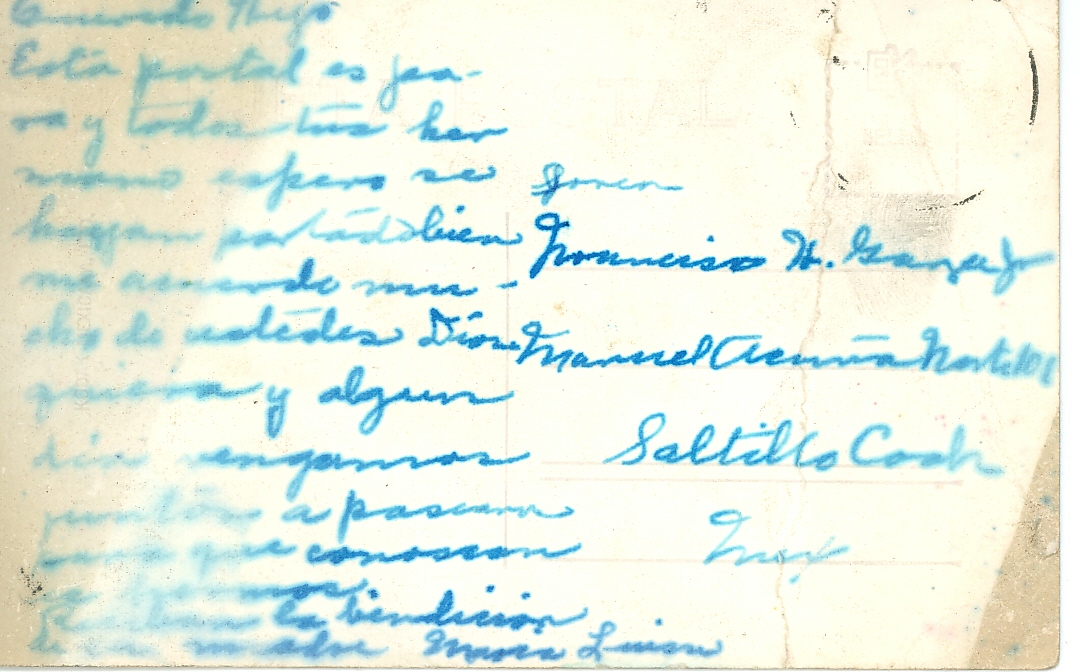 Querido Hijo
Esta postal es pa-
ra y todos tus her
mano espero se
hallan portado bien
me acuerdo mu-
cho de ustedes Dios
quiera y algun
dia vengamos
juntos a pasear
para que conoscan
Reciban la bendicion
de su madre Maria Luisa
Joven
Francisco H. Garza Jr
Manuel Acuña Norte 101
Saltillo Coah
Mex